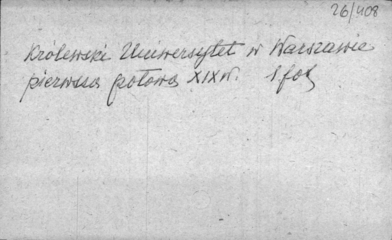 26/408
Królewski Uniwersytet w Warszawie
pierwsza połowa XIXw. 1 fot